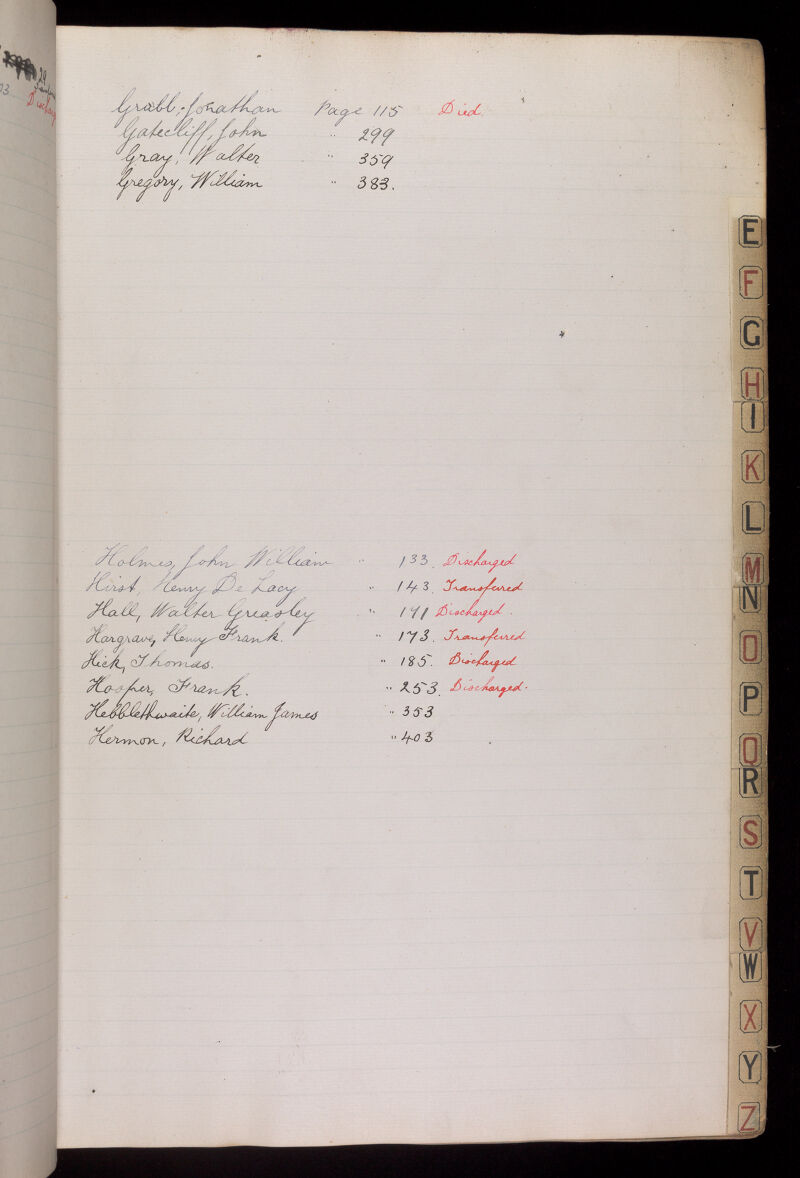 Grabb, Jonathan Page 115 Died.
Gatecliff, John " 299
Gray, Walter " 359
Gregory, William " 383.
Holmes, John William " 133. Discharged
Hirst, Henry De Lacy " 143. Transferred
Hall, Walter Greasley " 171 Discharged.
Hargrave, Henry Frank. " 173. Transferred
Hick, Thomas. " 185. Discharged
Hooper, Frank. " 253. Discharged.
Hebblethwaite, William James " 353
Hermon, Richard " 403
E
F
G
H
I
K
L
M
N
O
P
Q
R
S
T
V
W
X
Y
Z